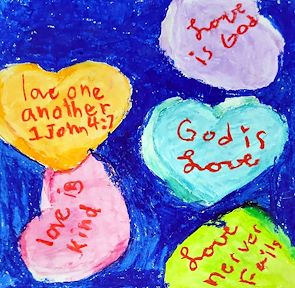 Love
is God
love one
another
1 John 4:7
God is
Love
love is
kind
Love
nerver
Fails